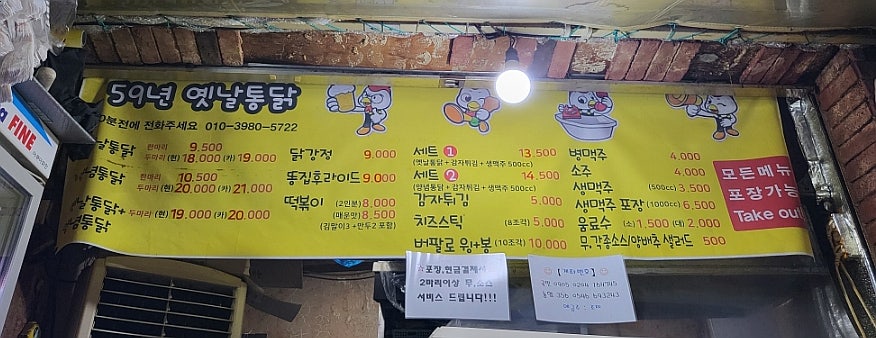 59년 옛날통닭
0분전에 전화주세요 010-3980-5722
날통닭 한마리 9.500
두마리 (현) 18.000 (카) 19.000
념통닭 한마리 10.500
두마리 (현) 20.000 (카) 21.000
날통닭+
념통닭 두마리 (현) 19.000 (카) 20.000
닭강정 9.000
똥집후라이드 9.000
떡볶이 (2인분) 8,000
(매운맛) 8,500
(김말이3 + 만두2 포함)
세트 1 13.500
(옛날통닭 + 감자튀김 + 생맥주 500cc)
세트 2 14.500
(양념통닭 + 감자튀김 + 생맥주 500cc)
감자튀김 5.000
치즈스틱 (8조각) 5.000
버팔로 윙+봉 (10조각) 10,000
병맥주 4.000
소주 4.000
생맥주 (500cc) 3.500
생맥주 포장 (1000cc) 6,500
음료수 (소) 1,500 (대) 2.000
무,각종소스/양배추 샐러드 500
모든메뉴
포장가능
Take out
FINE
☆포장,현금결제시
2마리이상 무,소스
서비스 드립니다!!!